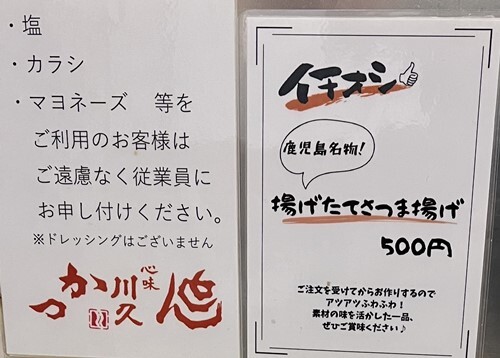 ・塩
・カラシ
・マヨネーズ　等を
ご利用のお客様は
ご遠慮なく従業員に
お申し付けください。
※ドレッシングはございません
心味
かつ
川久
イチオシ
鹿児島名物!
揚げたてさつま揚げ
500円
ご注文を受けてからお作りするので
アツアツふわふわ!
素材の味を活かした一品、
ぜひご賞味ください♪